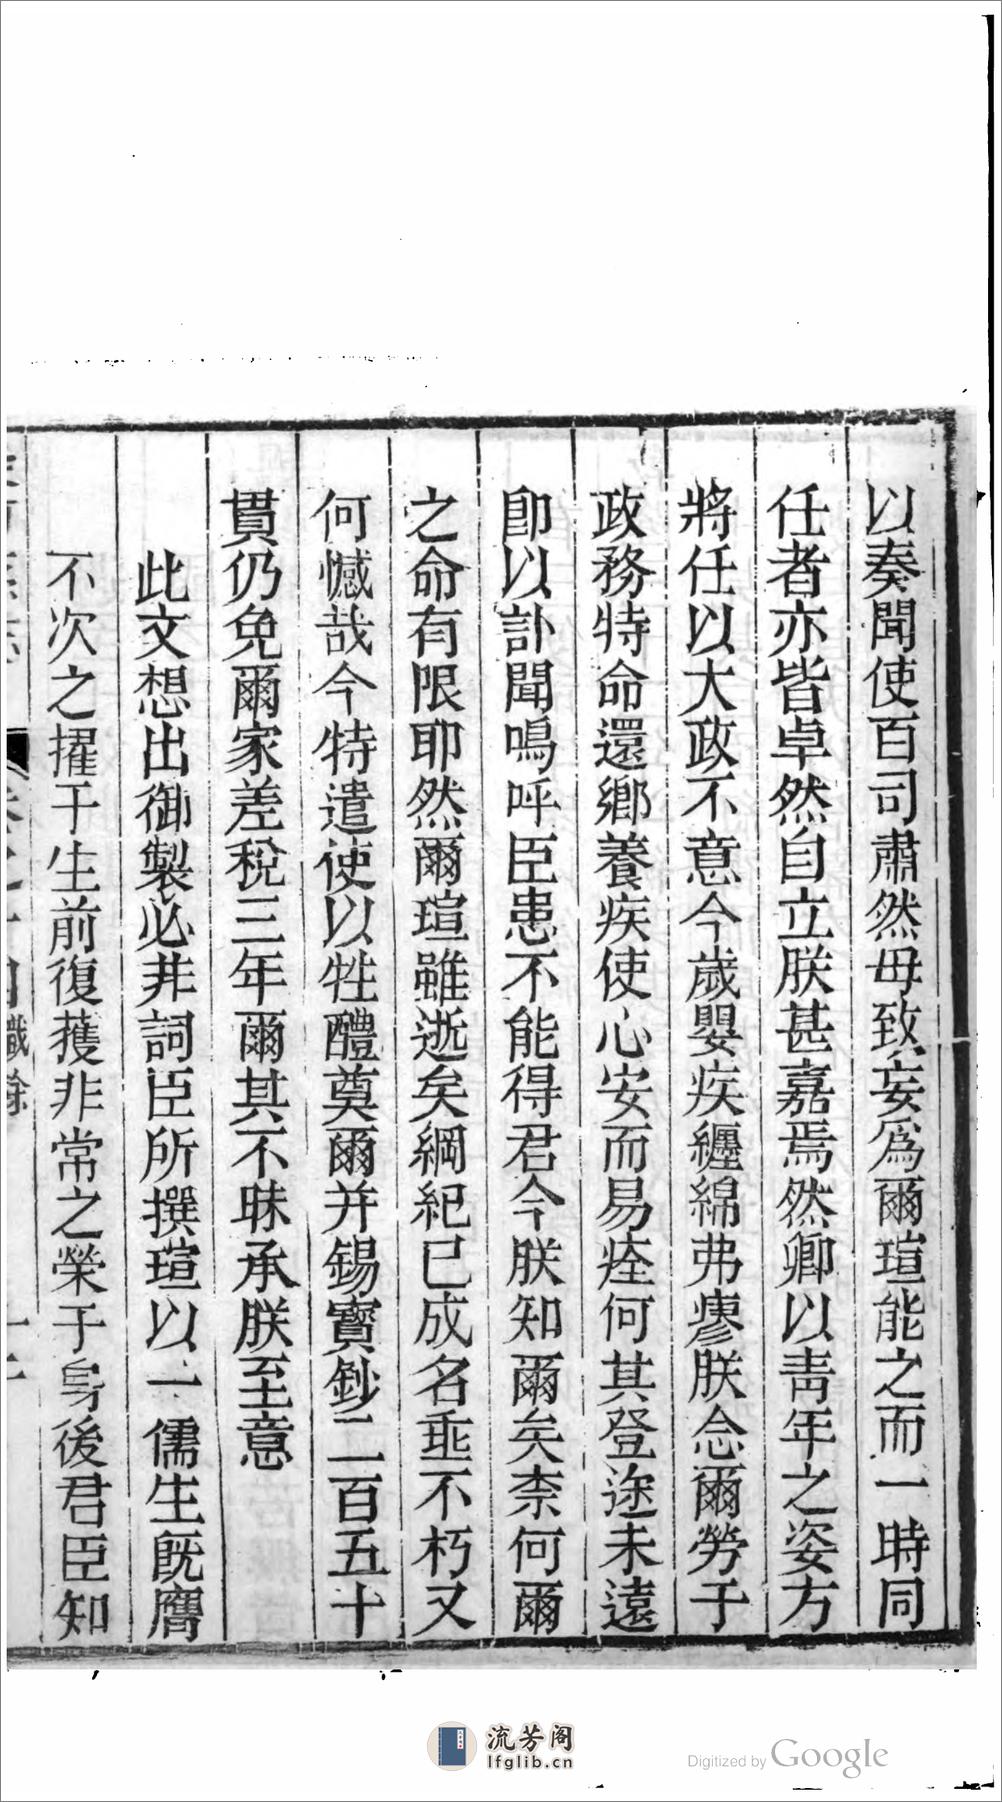 以奏聞使百司肅然毋致妄爲爾瑄能之而一時同
任者亦皆卓然自立朕甚嘉焉然卿以靑年之姿方
將任以大政不意今歲嬰疾纏綿弗瘳朕念爾勞于
政務特命還鄕養疾使心安而易痊何其登途未遠
卽以訃聞鳴呼臣患不能得君今朕知爾矣柰何爾
之命有限耶然爾瑄雖逝矣綱紀已成名垂不朽又
何憾哉今特遣使以牲醴奠爾并錫寶鈔二百五十
貫仍免爾家差稅三年爾其不昧承朕至意
此文想出御製必非詞臣所撰瑄以一儒生旣膺
不次之擢于生前復獲非常之榮于身後君臣知
流芳阁
lfglib.cn
Digitized by Google